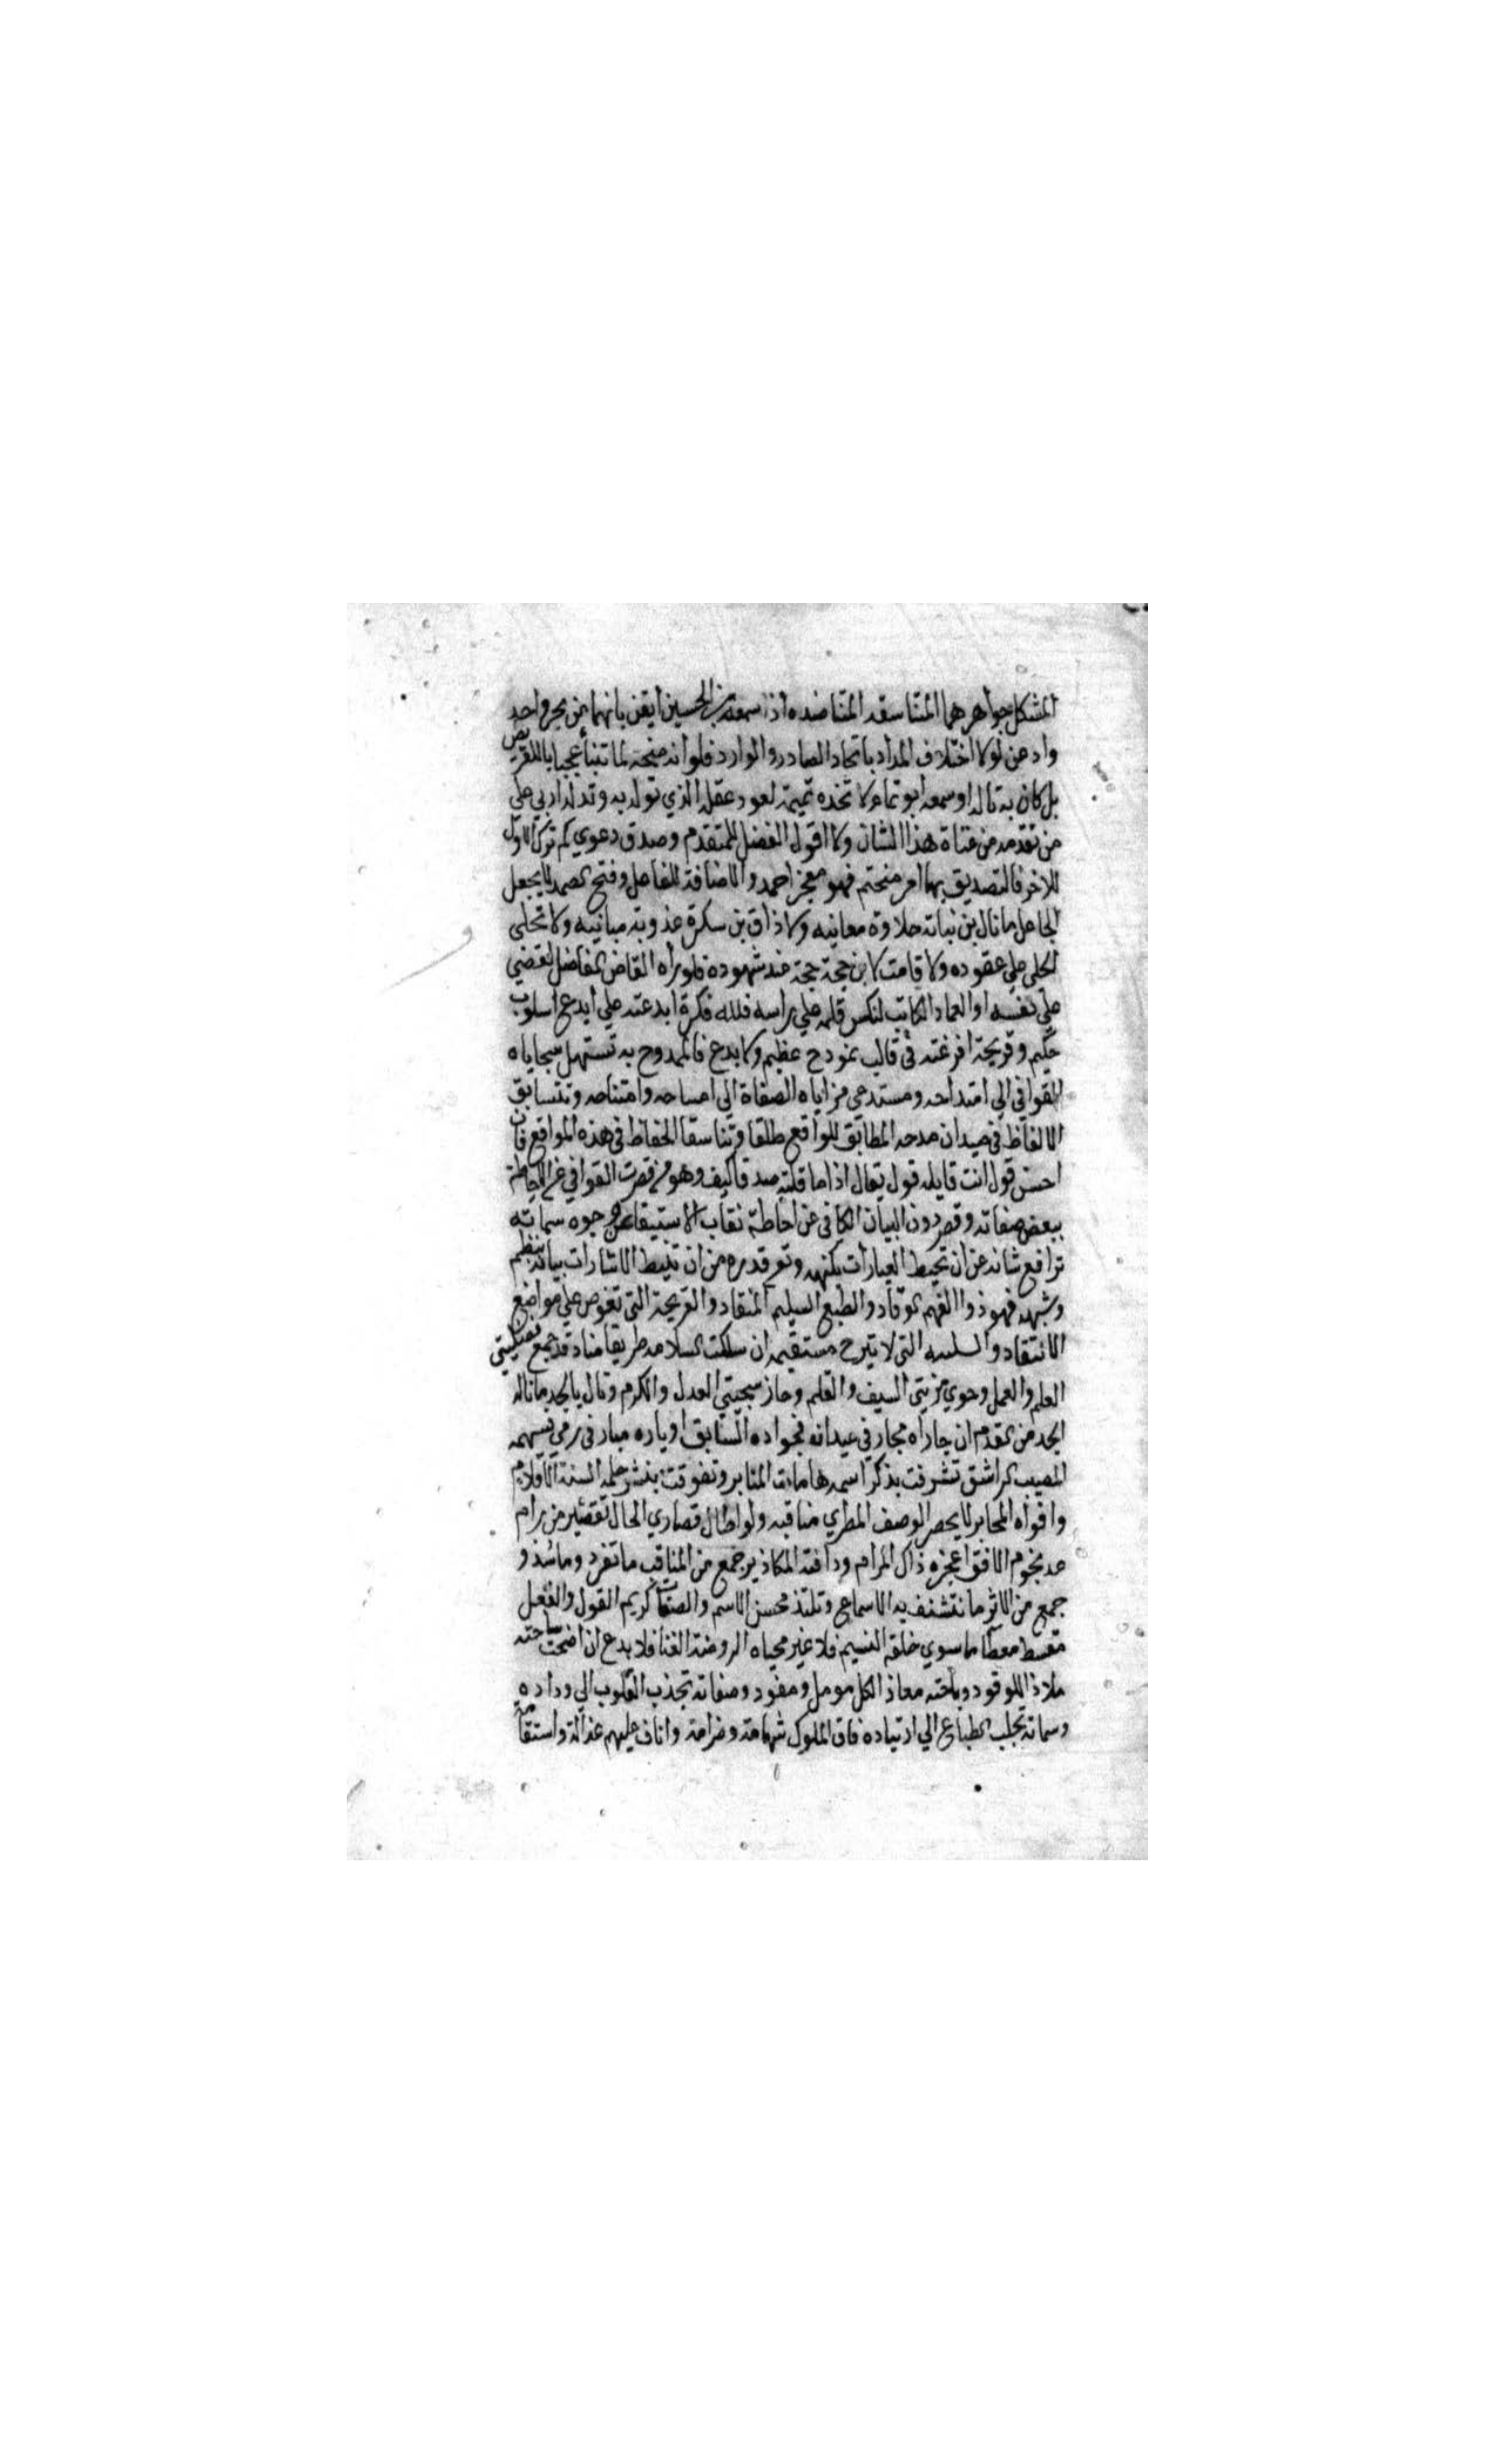 المشكل جواهرهما المتناسقه المتناضده اذا سمعه بن الحسين ايقن بانهما من بحر واحد
واد عن لولا اختلاف المداد باتحاد الصادر والوارد فلو انه منحة لما تنبأ عجبا بالقريض
بل كان به تاله او سمعه ابو تمام لاتخذه تميمة لعود عقله الذي توله به وتدله اربي علي
من تقدمه من هذا الشان ولا اقول الفضل للمتقدم وصدق دعوي كم ترك الاول
للاخر فالتصديق بهما امر منحتم فهو معجز احمد والاضافة للفاعل وفتح الصمد لا يجعل
الجاعل ما نال بن نباته حلاوة معانيه ولا ذاق بن سكرة عذوبة مبانيه ولا تحلى
الحلي علي عقوده ولا قامت لابن حجة حجة عند شهوده فلو رأه القاض الفاضل لقضي
علي نفسه او العماد الكاتب لنكس قلمه علي راسه فلله فكرة ابدعته علي ابدع اسلوب
حكيم وقريحة افرغته في قالب نموذج عظيم ولا بدع فالممدوح به تستهل سجاياه
القوافي الي امتداحه ومستدعي مزاياه الصفاة الي وامتناحه وتتسابق
الالفاظ في ميدان مدحه المطابق للواقع طلقا وتناسقا الحفاظ في هذه المواقع فان
احسن قول انت قايله قول يقال اذا ما قلته صدقا كيف وهو من قصرت القوافي عن الاحاطة
ببعض صفاته وقصر دون البيان الكافي عن احاطة نقاب الاستيقا عن وجوه سماته
ترافع شانه عن ان تحيط العبارات بكنهه وتوقدره من ان تنيط الاشارات بيانه بنظم
وشبهه فهو ذوا الفهم الوقاد والطبع السليم المنقاد والقريحة التي تغوص علي مواضع
الانتقاد التي لا تبرح مستقيمه ان سلكت السلامه طريقا مناد قد جمع فضيلتي
العلم والعمل وحوي مزيتي السيف والقلم وحاز سجيتي العدل والكرم ونال بالجد ما ناله
الجد من القدم ان جاراه مجار في ميدانه فجواده السابق او باره مبار في رمي فسهمه
المصيب الراشق تشرفت بذكر اسمه هامات المنابر وتفوقت بنشر علمه السنة الاقلام
وافواه المحابر لا يحصر الوصف المطري مناقبه ولو اطال قصاري الحال تقصير من رام
عد نجوم الافق اعجزه ذاك المرام ودافته المكاذير جمع من المناقب ما تفرد وما شذ و
جمع من الاثر ما تتشنف به الاسماع وتلتذ محسن الاسم والصفات كريم القول والفعل
مقسط معطا ما سوي خلقه النسيم فلا غير محياه الروضة الغنا فلا بدع ان اضحت ساحته
ملاذا للوقود وباحته معاذ الكل مومل ومفود وصفاته تجذب القلوب الي وداده
وسماته تجلب الطباع الي ارتياده فاق الملوك شهامة وضرامة واناف عليهم عدالة واستقامة